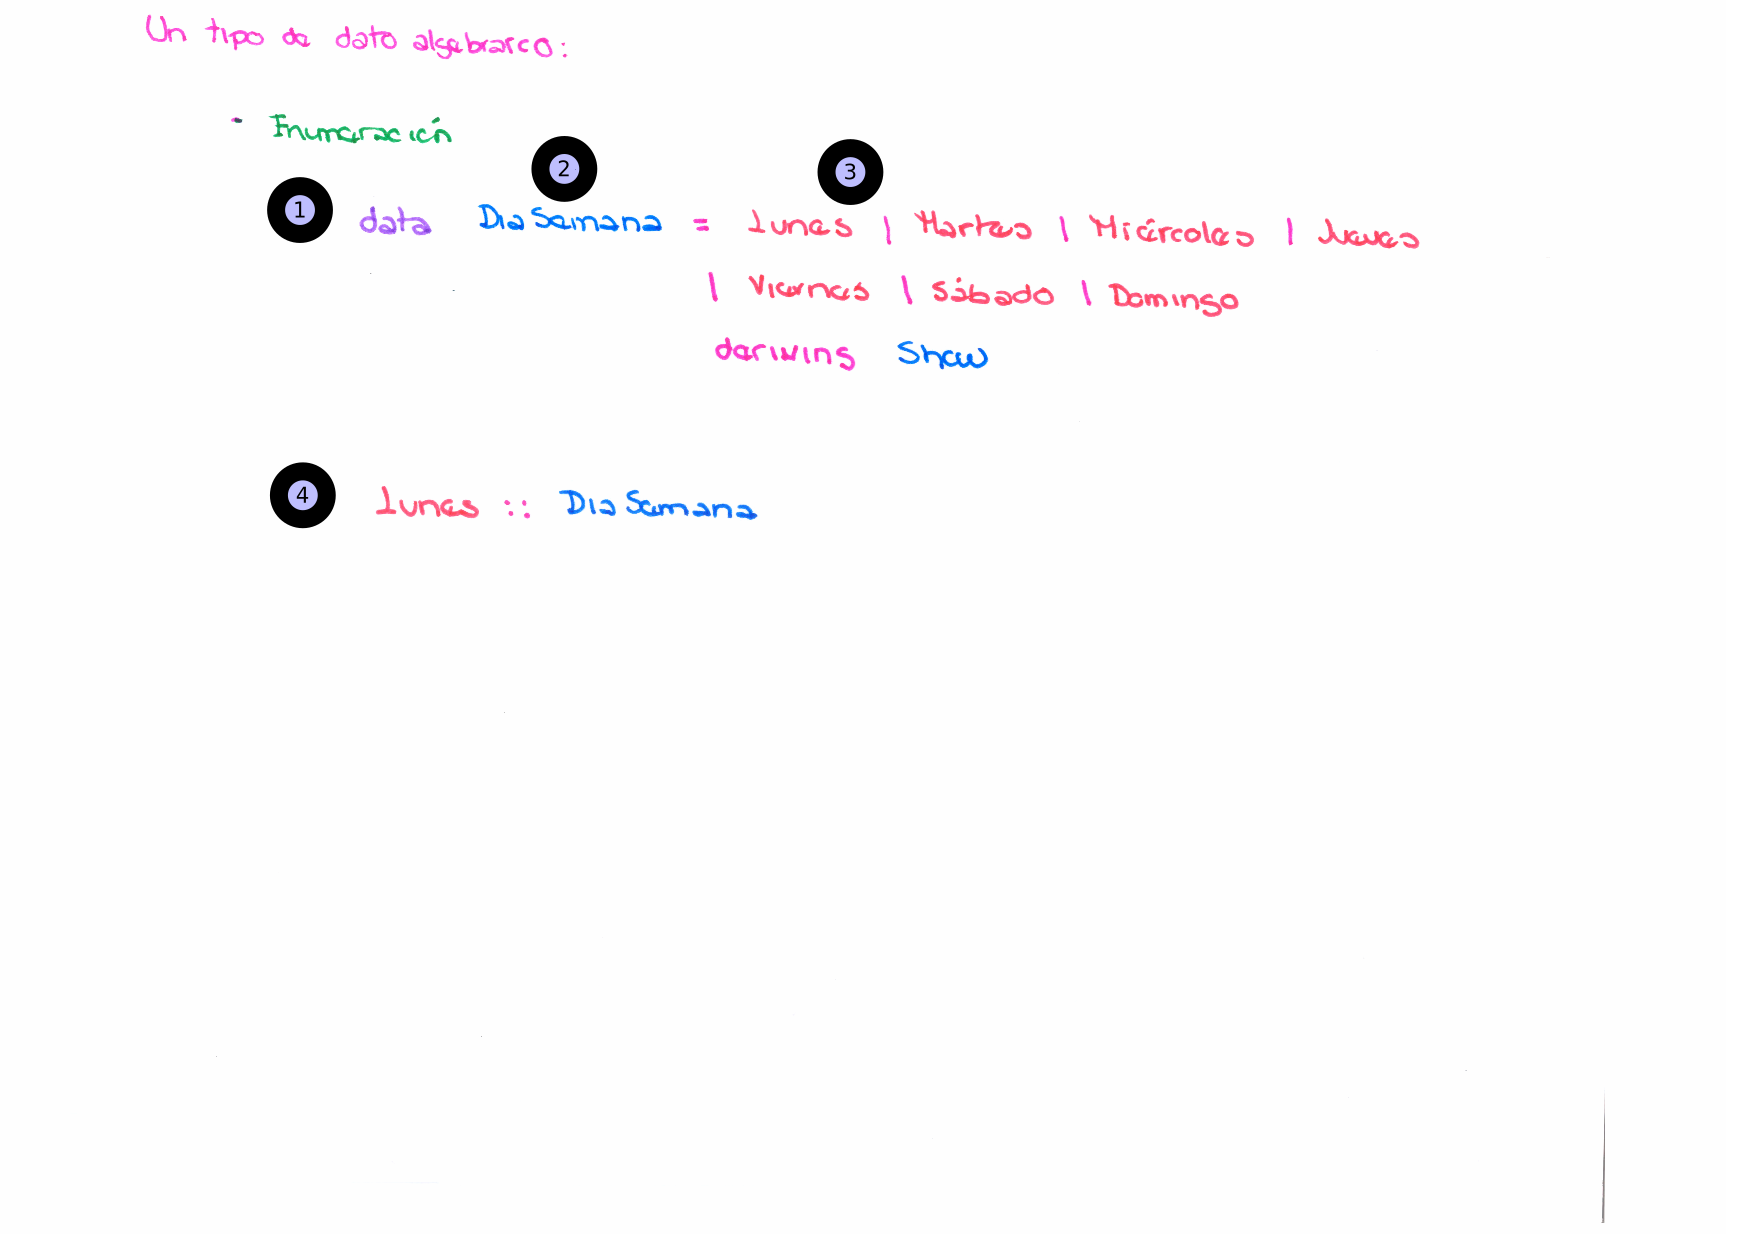 Un tipo de dato algebraico:
• Enumeración
2 3
1 data DiaSemana = Lunes | Martes | Miércoles | Jueves
| Viernes | Sábado | Domingo
deriving Show
4 Lunes :: DiaSemana